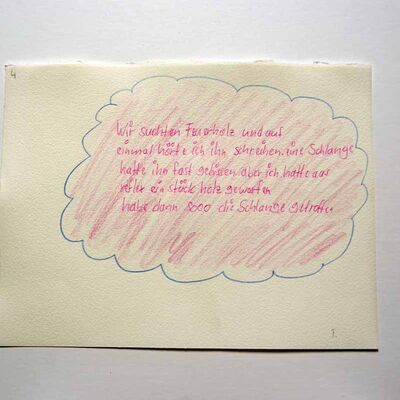 4
Wir suchten Feuerholz und auf
einmal hörte ich ihn schreihen. eine Schlange
hatte ihn fast gebissen aber ich hatte aus
ein stück holz geworfen
habe dann sooo die Schlange getroffen